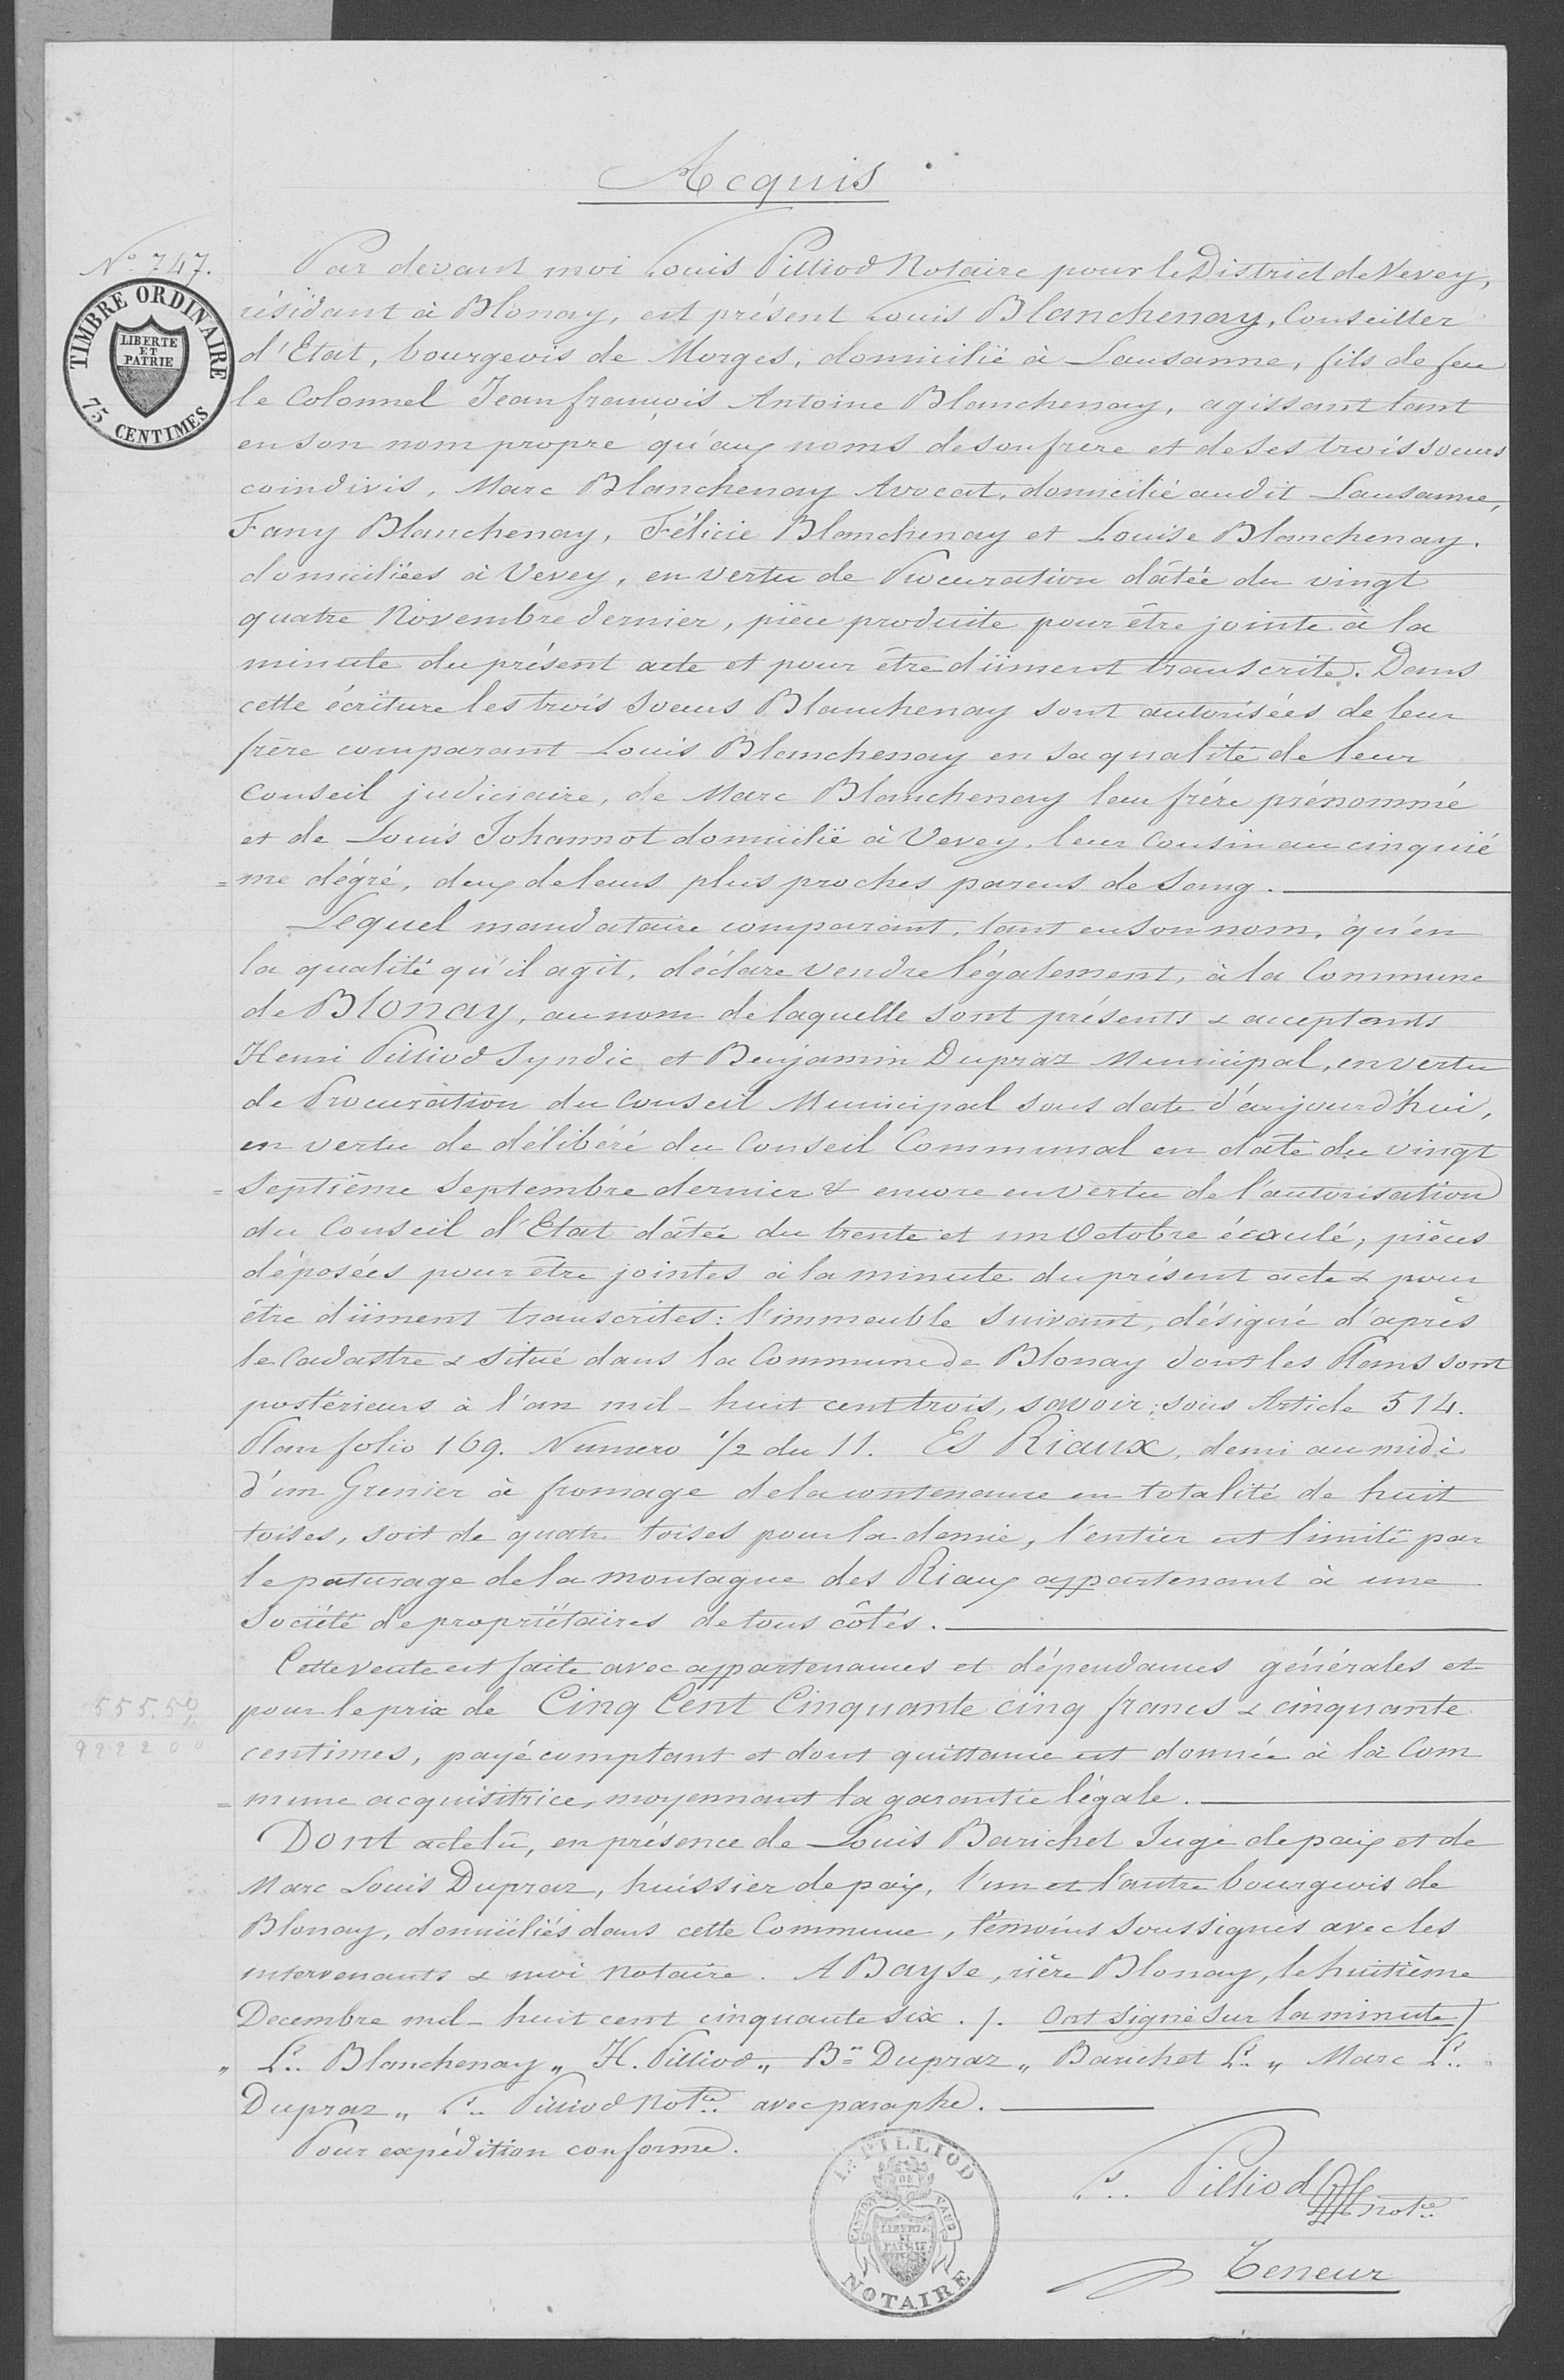 Acquis
N° 747.
TIMBRE ORDINAIRE
LIBERTE
ET
PATRIE
75 CENTIMES
Par devant moi Louis Pilliod Notaire pour le District de Vevey,
résidant à Blonay, est présent Louis Blanchenay, Conseiller
d'Etat, bourgeois de Morges, domicilié à Lausanne, fils de feu
le Colonnel Jean françois Antoine Blanchenay, agissant tant
en son nom propre qu'aux noms de son frère et de ses trois soeurs
coindivis, Marc Blanchenay Avocat, domicilié audit Lausanne,
Fany Blanchenay, Félicie Blanchenay et Louise Blanchenay.
domiciliées à Vevey, en vertu de Procuration dâtée du vingt
quatre Novembre dernier, pièce produite pour être jointe à la
minute du présent acte et pour être düment transcrite. Dans
cette écriture les trois Soeurs Blanchenay sont autorisées de leur
frère comparant Louis Blanchenay en sa qualité de leur
Conseil judiciaire, de Marc Blanchenay leur frère prénommé
et de Louis Johannot domicilié à Vevey, leur Cousin au cinquié
= me dégré, deux de leurs plus proches parens de Sang.
Lequel mandataire comparant, tant en son nom, qu'en
la qualité qu'il agit, déclare vendre légalement, à la Commune
de Blonay, au nom de laquelle sont présents & acceptants
Henri Pilliod Syndic et Benjamin Dupraz Municipal, en vertu
de Procuration du Conseil Municipal sous date d'aujourd'hui,
en vertu de délibéré du Conseil Communal en date du vingt
= Septième Septembre dernier & encore en vertu de l'autorisation
du Conseil d'Etat dâtée du trente et un Octobre écoulé; pièces
déposées pour être jointes à la minute du présent acte & pour
être düment transcrites: l'immeuble suivant, désigné d'après
le Cadastre & situé dans la Commune de Blonay dont les Plans sont
postérieurs à l'an mil-huit cent trois, savoir: sous Article 514.
Plan folio 169. Numero 1/2 du 11. Es Riaux, demi au midi
d'un Grenier à fromage de la contenance en totalité de huit
toises, soit de quatre toises pour la demie, l'entier est limité par
le paturage de la montagne des Riaux appartenant à une
Société de propriétaires de tous côtés.
Cette vente est faite avec appartenances et dépendances générales et
555.50
pour le prix de Cinq Cent Cinquante cinq francs & cinquante
centimes, payé comptant et dont quittance est donnée à la Com
= mune acquisitrice, moyennant la garantie légale.
Dont acte lu, en présence de Louis Barichet Juge de paix et de
Marc Louis Dupraz, huissier de paix, l'un et l'autre bourgeois de
Blonay, domiciliés dans cette Commune, témoins soussignés avec les
intervenants & moi Notaire. A Bayse, rière Blonay, le huitième
Decembre mil-huit cent cinquante six. /. Ont signé sur la minute /
" Ls. Blanchenay " H. Pilliod " Bin Dupraz " Barichet Ls. " Marc Ls.
Dupraz " Ls. Pilliod Notre. avec paraphe.
Pour expédition conforme.
Ls PILLIOD
CANTON DE VAUD
LIBERTE
ET
PATRIE
NOTAIRE
Ls. Pilliod notre
Teneur